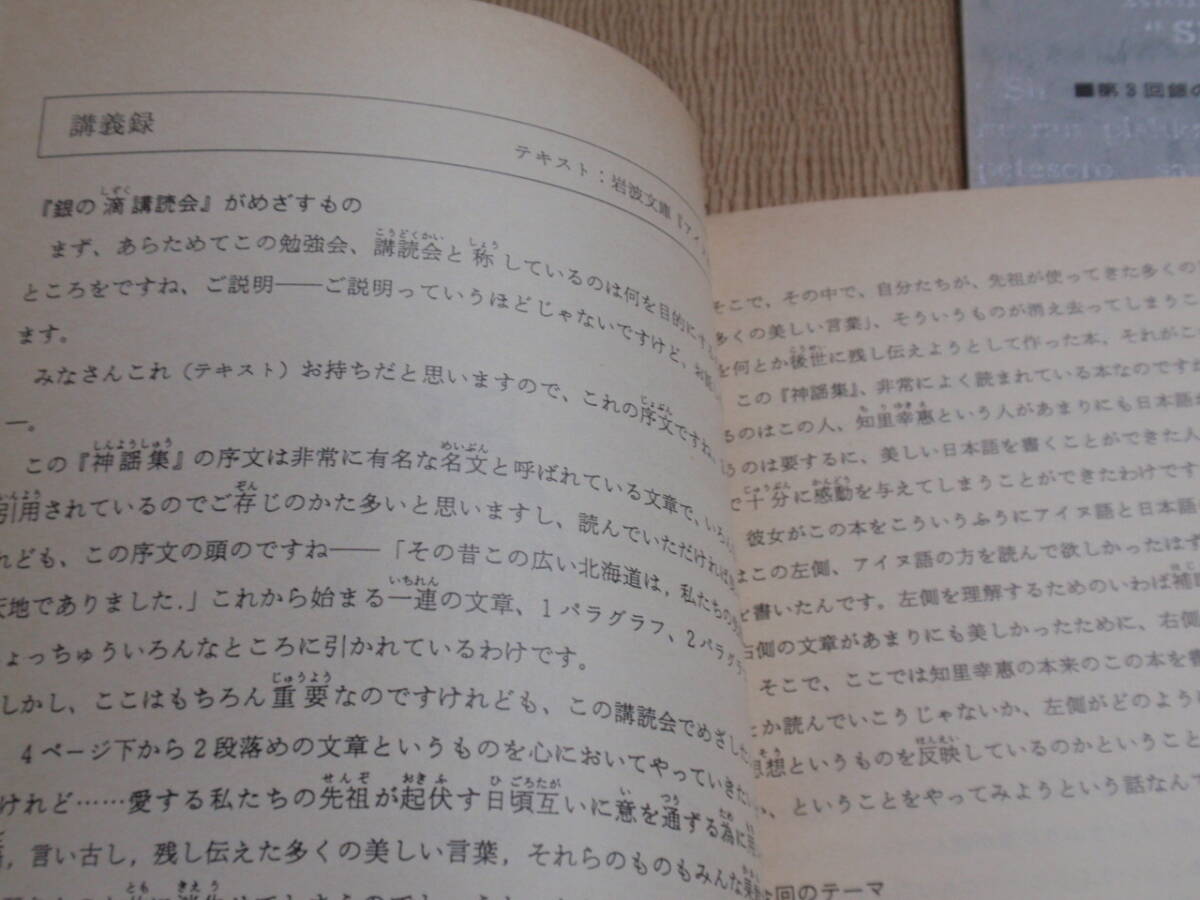 講義録
テキスト：岩波文庫『アイ
『銀の滴講読会』がめざすもの
まず、あらためてこの勉強会、講読会と称しているのは何を目的にする
ところをですね、ご説明――ご説明っていうほどじゃないですけど、お話
ます。
みなさんこれ（テキスト）お持ちだと思いますので、これの序文ですね、
一。
この『神謡集』の序文は非常に有名な名文と呼ばれている文章で、いろん
引用されているのでご存じのかた多いと思いますし、読んでいただければ
れども、この序文の頭のですね――「その昔この広い北海道は，私たちの先
天地でありました．」これから始まる一連の文章、1パラグラフ、2パラグラ
ょっちゅういろんなところに引かれているわけです。
しかし、ここはもちろん重要なのですけれども、この講読会でめざした
4ページ下から2段落めの文章というものを心においてやっていきたい
けれど……愛する私たちの先祖が起伏す日頃互いに意を通ずる為に
，言い古し，残し伝えた多くの美しい言葉，それらのものもみんな
そこで、その中で、自分たちが、先祖が使ってきた多くの
多くの美しい言葉」、そういうものが消え去ってしまうこ
を何とか後世に残し伝えようとして作った本、それがこ
この『神謡集』、非常によく読まれている本なのですが
るのはこの人、知里幸惠という人があまりにも日本語が
うのは要するに、美しい日本語を書くことができた人
で十分に感動を与えてしまうことができたわけです
彼女がこの本をこういうふうにアイヌ語と日本語
はこの左側、アイヌ語の方を読んで欲しかったはず
ど書いたんです。左側を理解するためのいわば補
右側の文章があまりにも美しかったために、右側
そこで、ここでは知里幸惠の本来のこの本を書
とか読んでいこうじゃないか、左側がどのよう
思想というものを反映しているのかということ
、ということをやってみようという話なんで
回のテーマ
■第3回銀の
"S
ran pishk